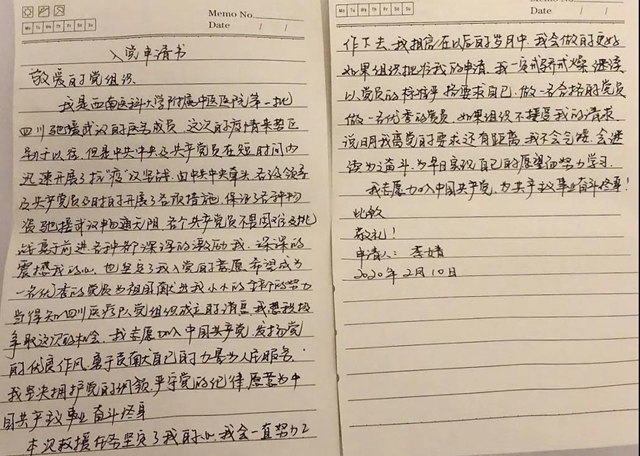 Memo No.
Mo Tu We Th Fr Sa Su
Date / /
入党申请书
敬爱的党组织:
我是西南医科大学附属中医医院第一批
四川驰援武汉的医务成员,这次的疫情来势凶
于以往,但是中共中央及共产党员在短时间内
迅速开展了抗“疫”攻坚战,由中共中央牵头,各级领导
及共产党员及时的开展了各项措施,保证了各种物
资驰援武汉畅通无阻,各个共产党员不畏困难及挑
战勇于前进各种各个深深的激励我,深深的
震撼我的心,也坚定了我入党的意愿,希望成为
一名优秀的党员为祖国献出我小小的的努力
当得知四川医疗队党组织成立的消息,我想积极
争取这次的机会,我志愿加入中国共产党,发扬党
的优良作风,勇于贡献自己的力量为人民服务,
我坚决拥护党的纲领,严守党的纪律,愿意为中
国共产主义事业奋斗终身
本次救援任务坚定了我的心,我会一直努力工
Mo Tu We Th Fr Sa Su
Memo No.
Date / /
作下去,我相信在以后的岁月中,我会做的更好
如果组织批准我的申请,我一定戒骄戒燥,继续
以党员的标准严格要求自己,做一名合格的党员
做一名优秀的党员,如果组织不接受我的请求,
说明我离党的要求还有距离,我不会气馁,会继
续为之奋斗,为早日实现自己的愿望而努力学习.
我志愿加入中国共产党,为共产主义事业奋斗终身!
此致
敬礼!
申请人:李婧
2020年2月10日